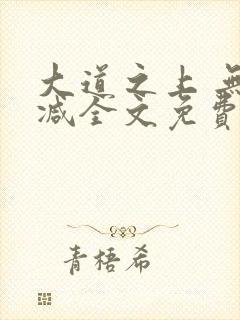 大道之上 無
减全文免費
青梧希